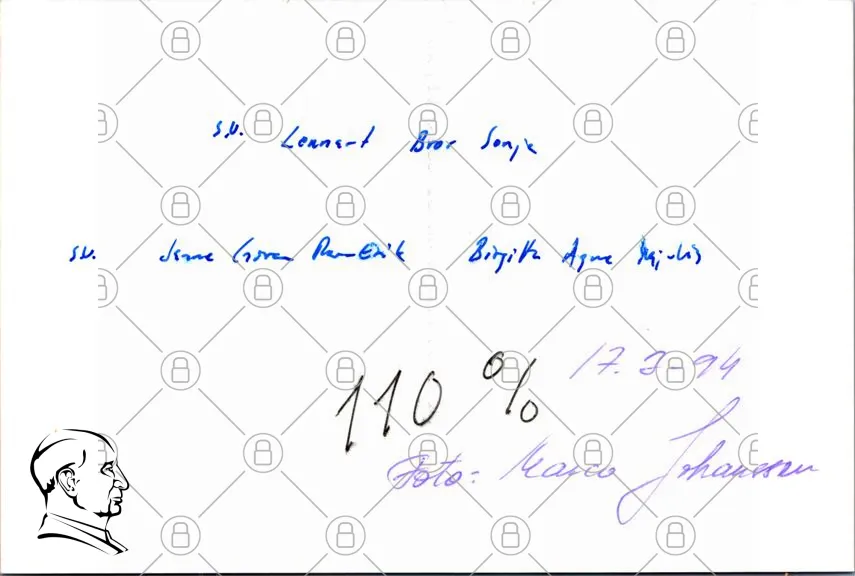 s.v. Lennart Bror Sonja
s.v. Göran Per-Erik Birgitta Agne
110 %
17.3-94
Foto: Johansson